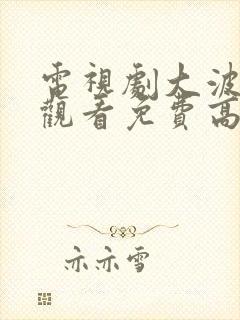 電視劇大波
觀看免費高
亦亦雪